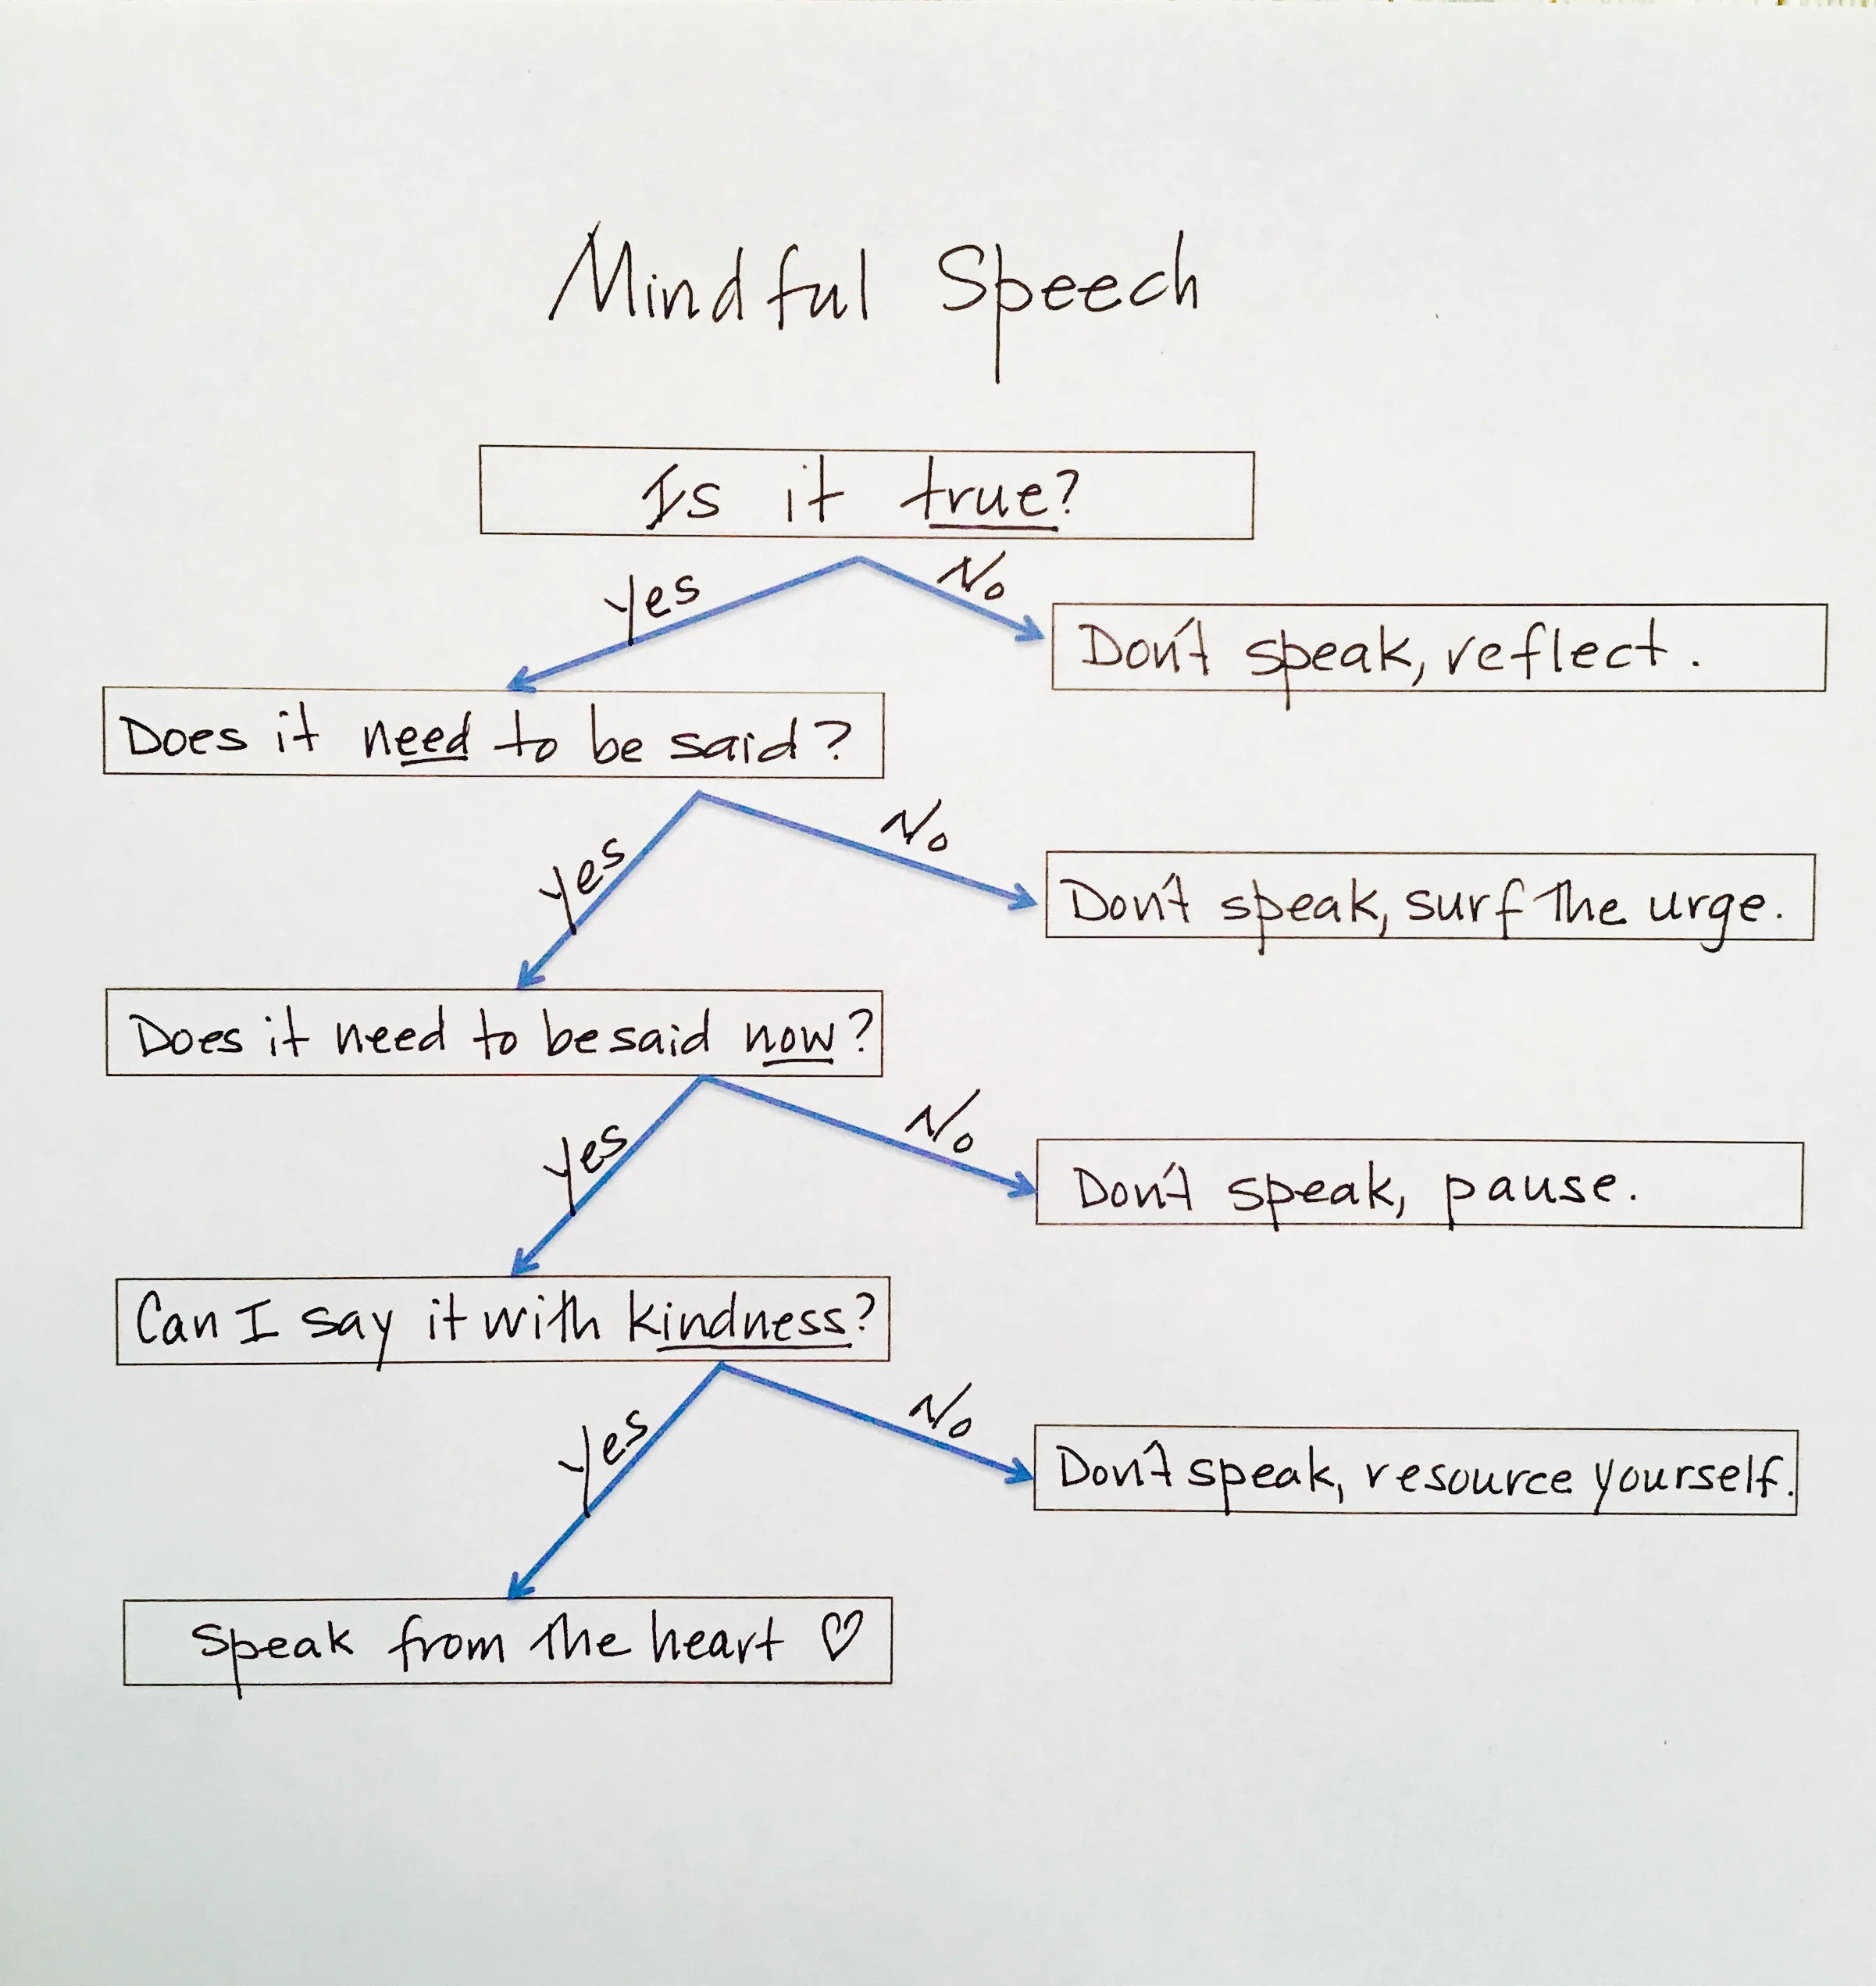 Mindful Speech
Is it true?
Yes
No
Don't speak, reflect.
Does it need to be said?
Yes
No
Don't speak, surf the urge.
Does it need to be said now?
Yes
No
Don't speak, pause.
Can I say it with kindness?
Yes
No
Don't speak, resource yourself.
Speak from the heart ♡